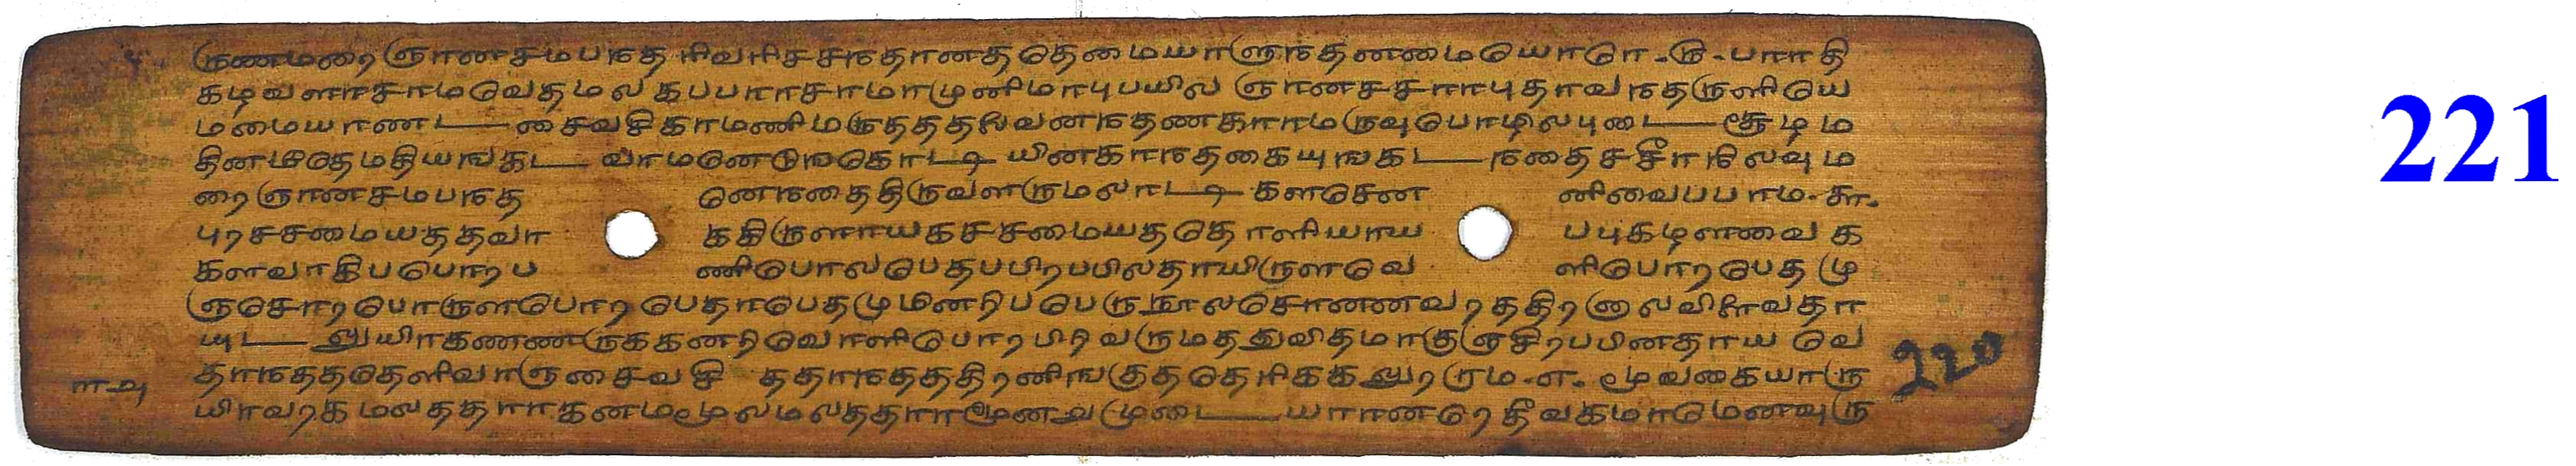 ருணமறை ஞானசமபநத ரிவரிசசநதானததெமையாளுநதனமையோரெ-௫-பாரதி
கழவளாசாமவெதமல கபபாராசாமாமுனிமாபுபயில ஞானசசாரபுதாவநதருளியெ
மமையாணட சைவசிகாமணிமருதததலைவனநதணகாராமருவுபொழிலபுடை சூழம
தினமீதெமதியஙகட வாமனெடுஙகொட்டி யினகாநதகையுஙகட நதைசசீரநிலவும
றைஞானசமபநத னெநதைதிருவளருமலரடி களசென னிவைபபாம-௬-
புறசசமையததவர ககிருளாயகசசமையததொளியாய பபுகழளவைக
களவாகிபபொறப ணிபோலபெதபபிறபபிலதாயிருளவெ ளிபொறபெதமு
ஞசொறபொருளபொற பெதாபெதமுமினறிபபெருநூலசொனனவறததிறனாலவிளைவதா
யுட லுயிரகணணருககனறிவொளிபொறபிறி வருமததுவிதமாகுஞசிறபபினதாய வெ
தாநதததெளிவாஞசைவசி ததாநதததிறனிஙகுததெரிககலுறறாம-௭- மூவகையாரு
யிரவரகமலததாராகனமமூலமலததாரமூனறுமுடையாரனறெதீவகமாமெனவுரு
220
221